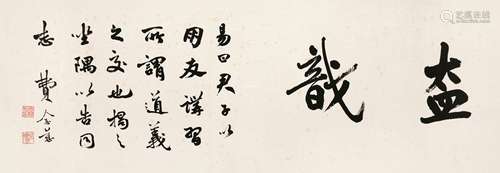 盍戠
易曰君子以
朋友講習
所謂道義
之交也揭之
坐隅以告同
志 費念慈